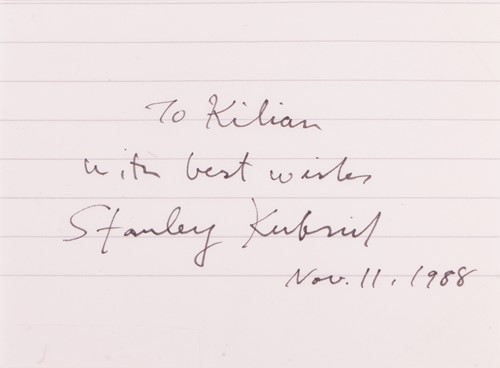 To Kilian
with best wishes
Stanley Kubrick
Nov. 11, 1988